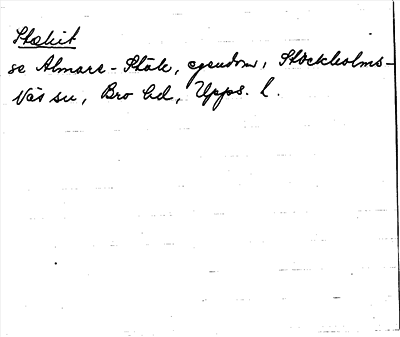 Stækit
se Almare-Stäk, egendom, Stockholms-
Näs sn, Bro hd, Upps. l.